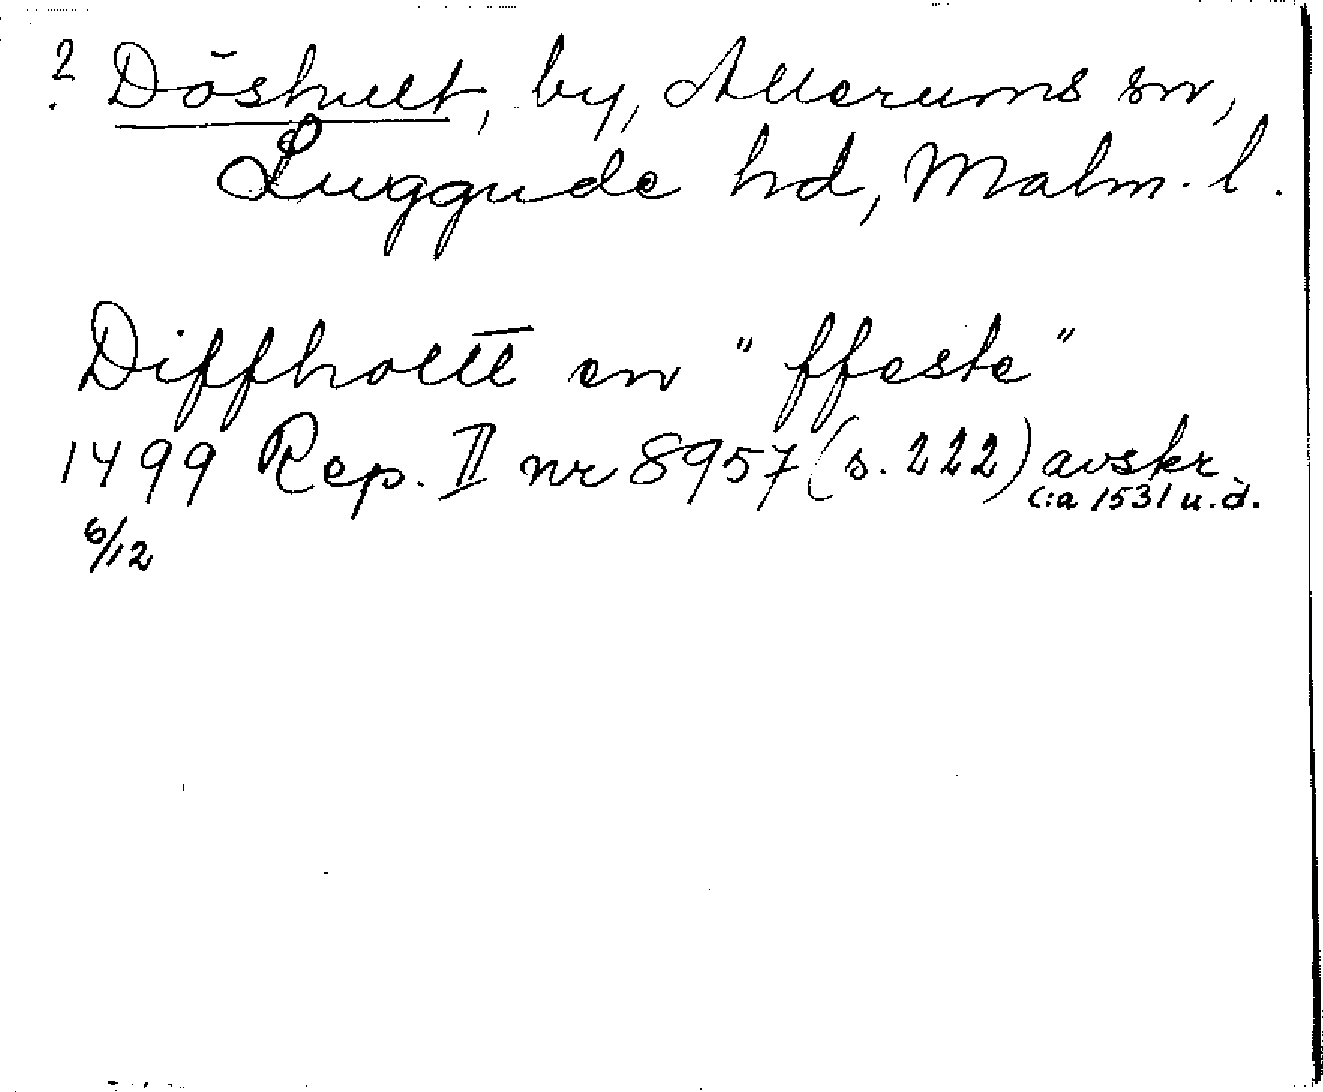 ? Döshult, by, Allerums sn,
Luggude hd, Malm. l.
Diffhollt̅t̅ en "ffeste"
1499 Rep. II nr 8957 (s. 222) avskr
c:a 1531 u.d.
6/12